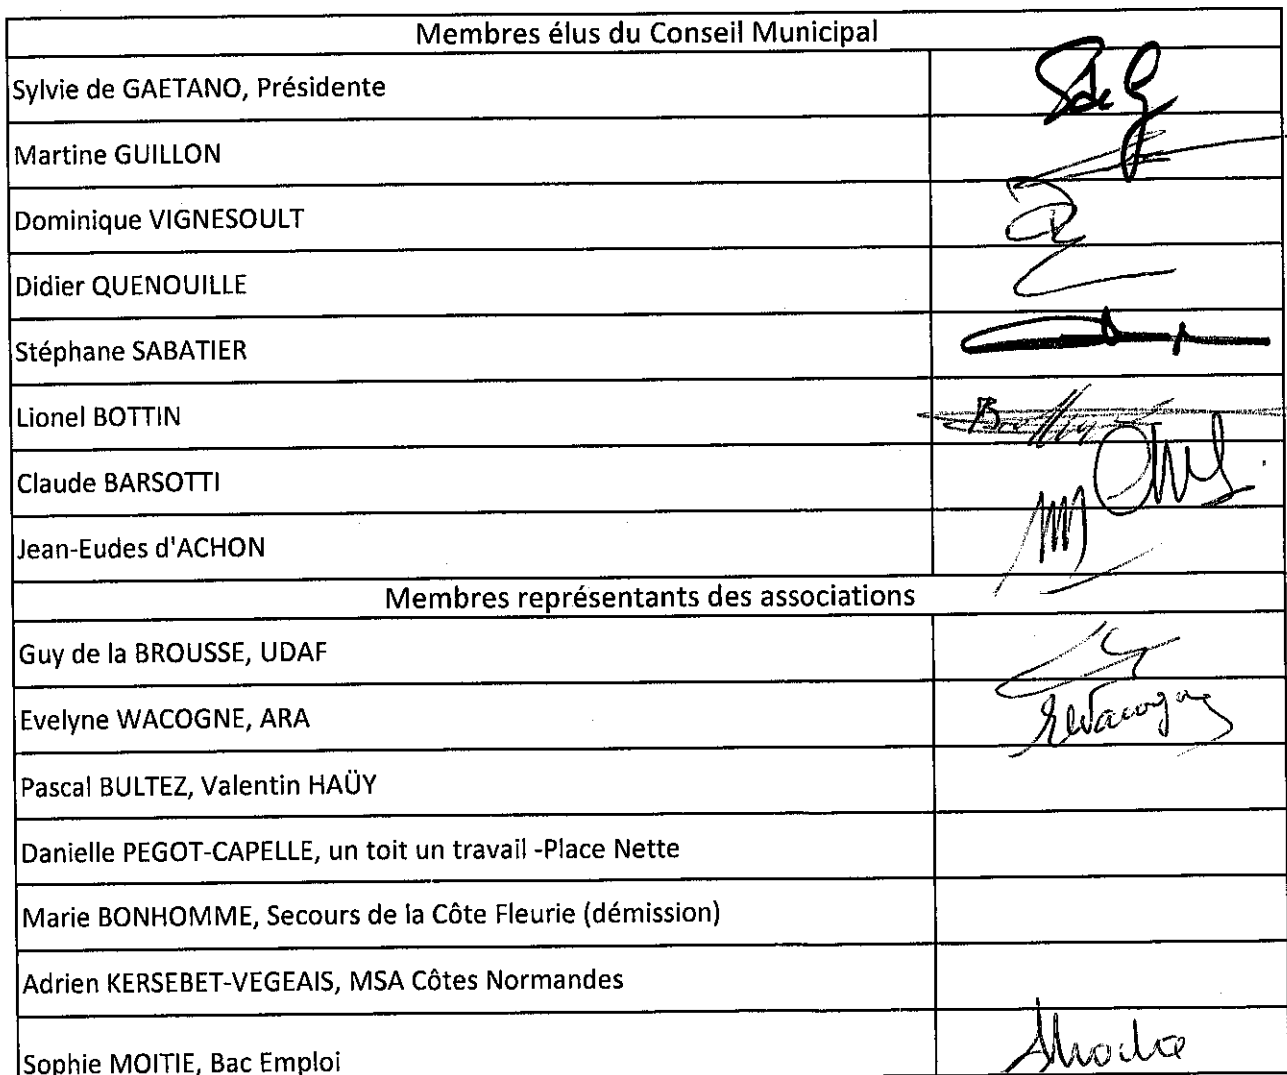 Membres élus du Conseil Municipal
Sylvie de GAETANO, Présidente
Martine GUILLON
Dominique VIGNESOULT
Didier QUENOUILLE
Stéphane SABATIER
Lionel BOTTIN
Claude BARSOTTI
Jean-Eudes d'ACHON
Membres représentants des associations
Guy de la BROUSSE, UDAF
Evelyne WACOGNE, ARA
Pascal BULTEZ, Valentin HAÜY
Danielle PEGOT-CAPELLE, un toit un travail -Place Nette
Marie BONHOMME, Secours de la Côte Fleurie (démission)
Adrien KERSEBET-VEGEAIS, MSA Côtes Normandes
Sophie MOITIE, Bac Emploi